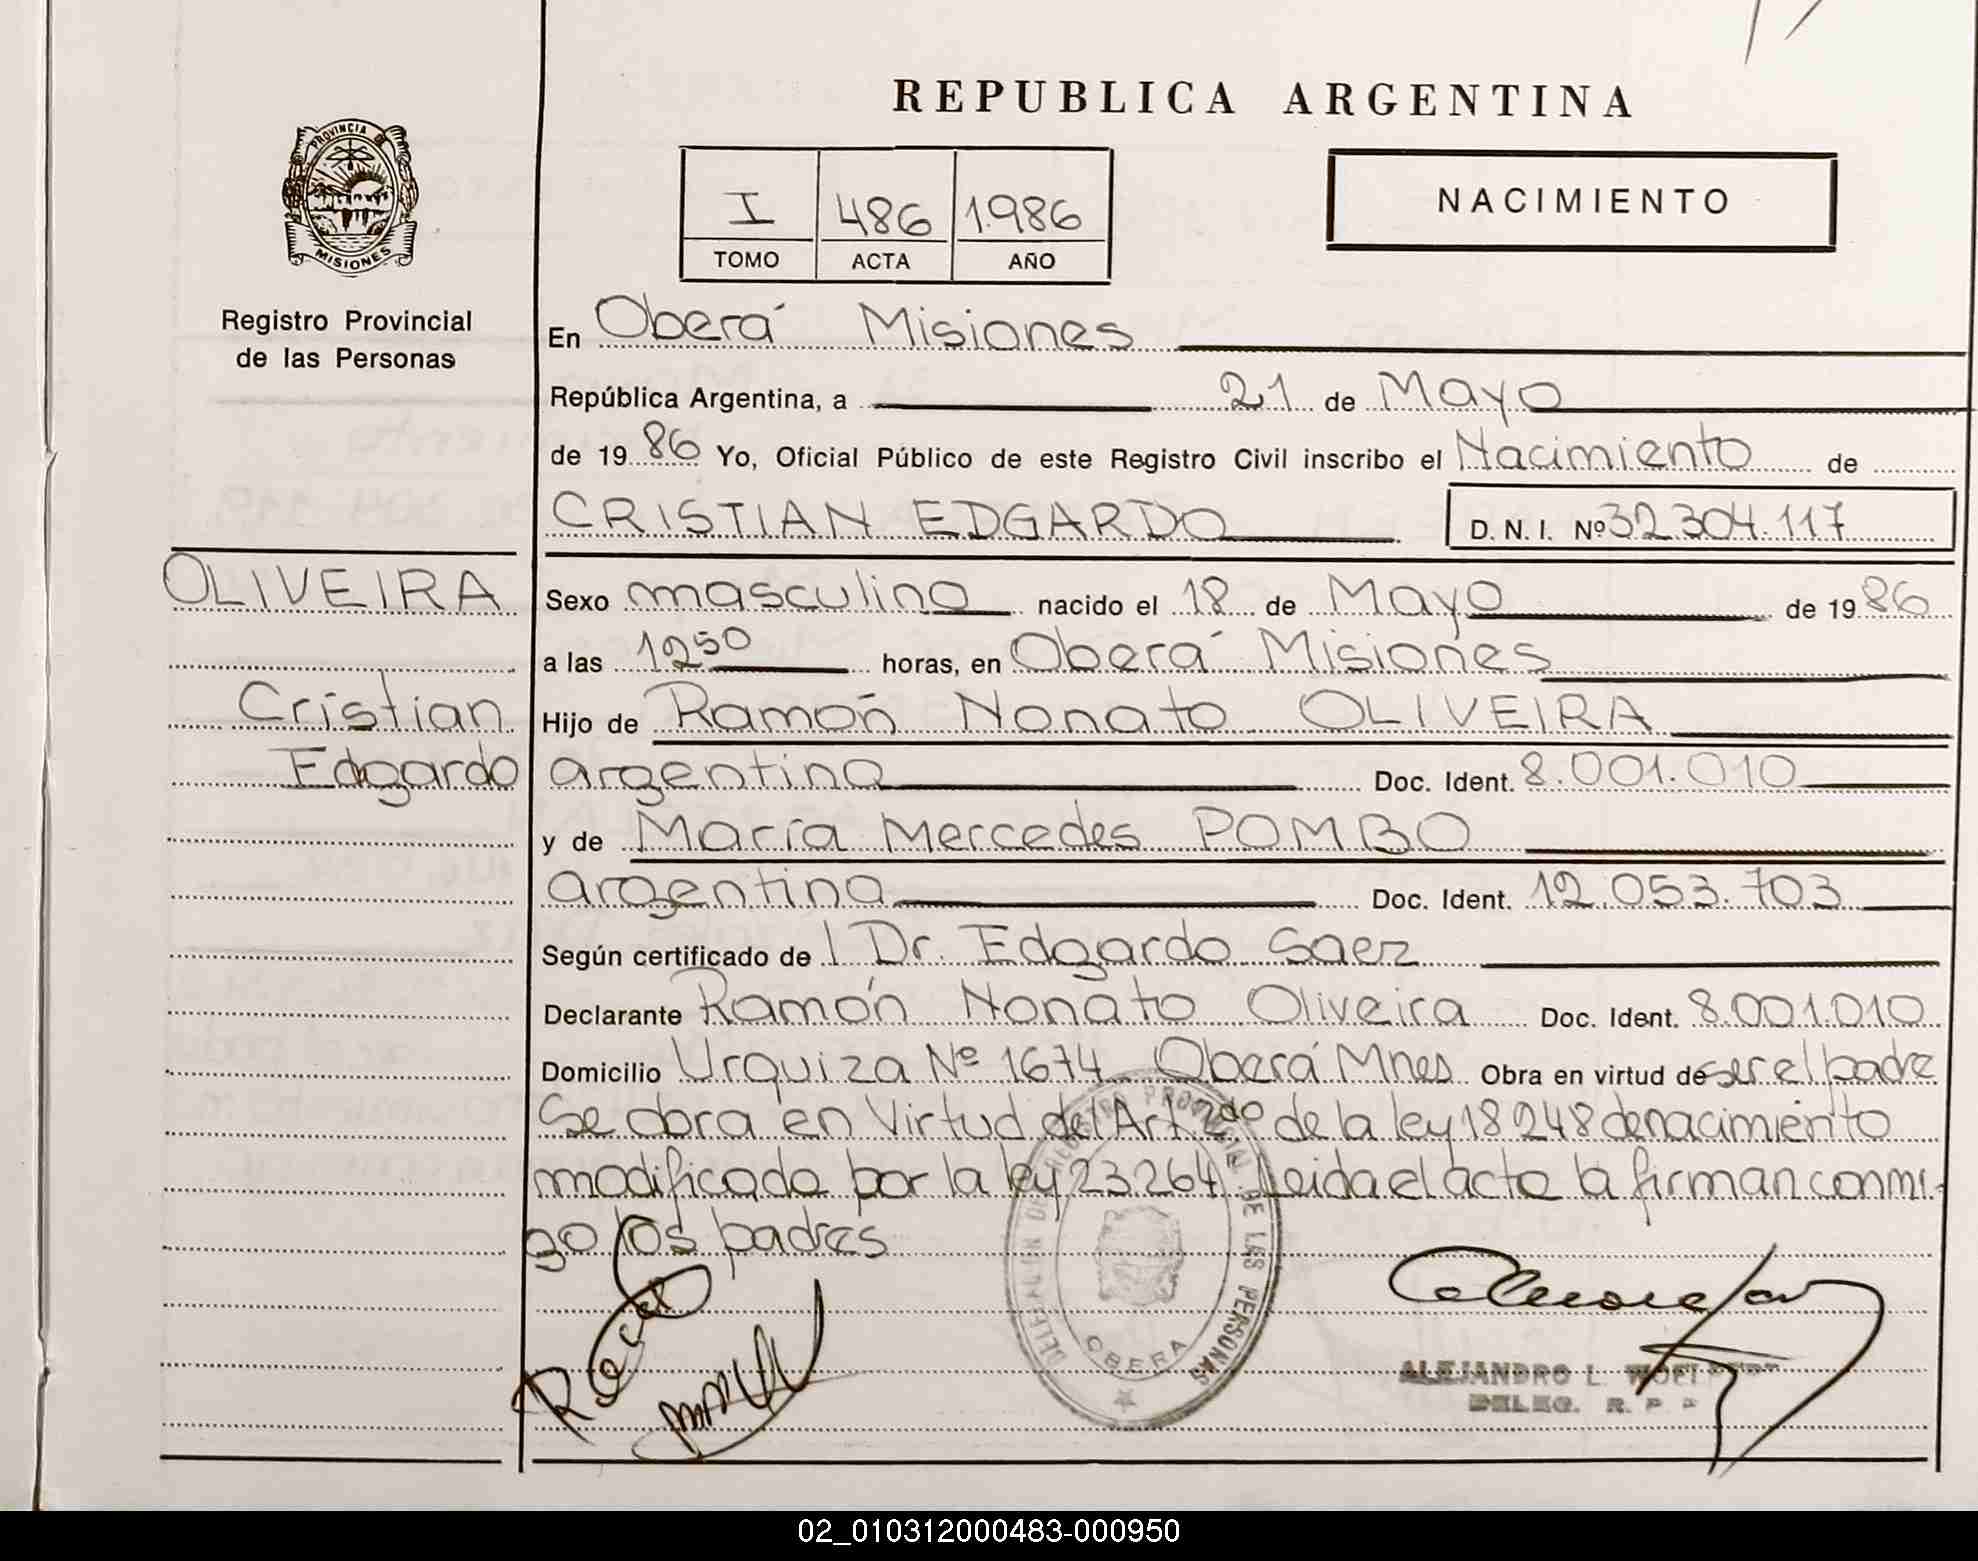 REPUBLICA ARGENTINA
PROVINCIA DE
MISIONES
Registro Provincial
de las Personas
I 486 1.986
TOMO ACTA AÑO
NACIMIENTO
En Oberá Misiones
República Argentina, a 21 de Mayo
de 1986 Yo, Oficial Público de este Registro Civil inscribo el Nacimiento de
CRISTIAN EDGARDO D. N. I. Nº 32.304.117
OLIVEIRA
Cristian
Edgardo
Sexo masculino nacido el 18 de Mayo de 1986
a las 12⁵⁰ horas, en Oberá Misiones
Hijo de Ramón Nonato OLIVEIRA
argentino Doc. Ident. 8.001.010
y de María Mercedes POMBO
argentina Doc. Ident. 12.053.703
Según certificado de l Dr. Edgardo Saez
Declarante Ramón Nonato Oliveira Doc. Ident. 8.001.010
Domicilio Urquiza Nº 1674 Oberá Mnes Obra en virtud de ser el padre
Se obra en Virtud del Art. 2do de la ley 18248 de nacimiento
modificado por la ley 23.264 Leida el acta la firman conmi-
go los padres
DELEGACIÓN DEL REGISTRO PROVINCIAL DE LAS PERSONAS
OBERA
ALEJANDRO L.
DELEG. R. P. P
02_010312000483-000950